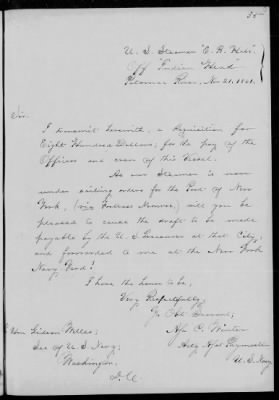 35
U. S. Steamer "E. B. Hale"
Off Indian Head
Potomac River, Nov 21, 1861.
Sir.
I transmit herewith, a Requisition for
Eight Hundred Dollars; for the pay of the
Officers and crew of this Vessel.
As our Steamer is now
under sailing orders for the Port of New
York, (via Fortress Monroe,) will you be
pleased to cause the draft to be made
payable by the U. S. Treasurer at that City,
and forwarded to me at the New York
Navy Yard!
I have the honor to be,
Very Respectfully,
Yr Obt. Servant,
C. Winter
Actg Asst Paymaster
U. S. Navy
Hon Gideon Welles,
Sec of U. S. Navy;
Washington,
D. C.